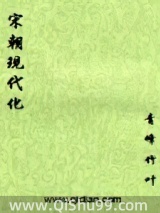 宋朝现代化
青峰竹叶
www.qidian.com
www.QiShu99.com